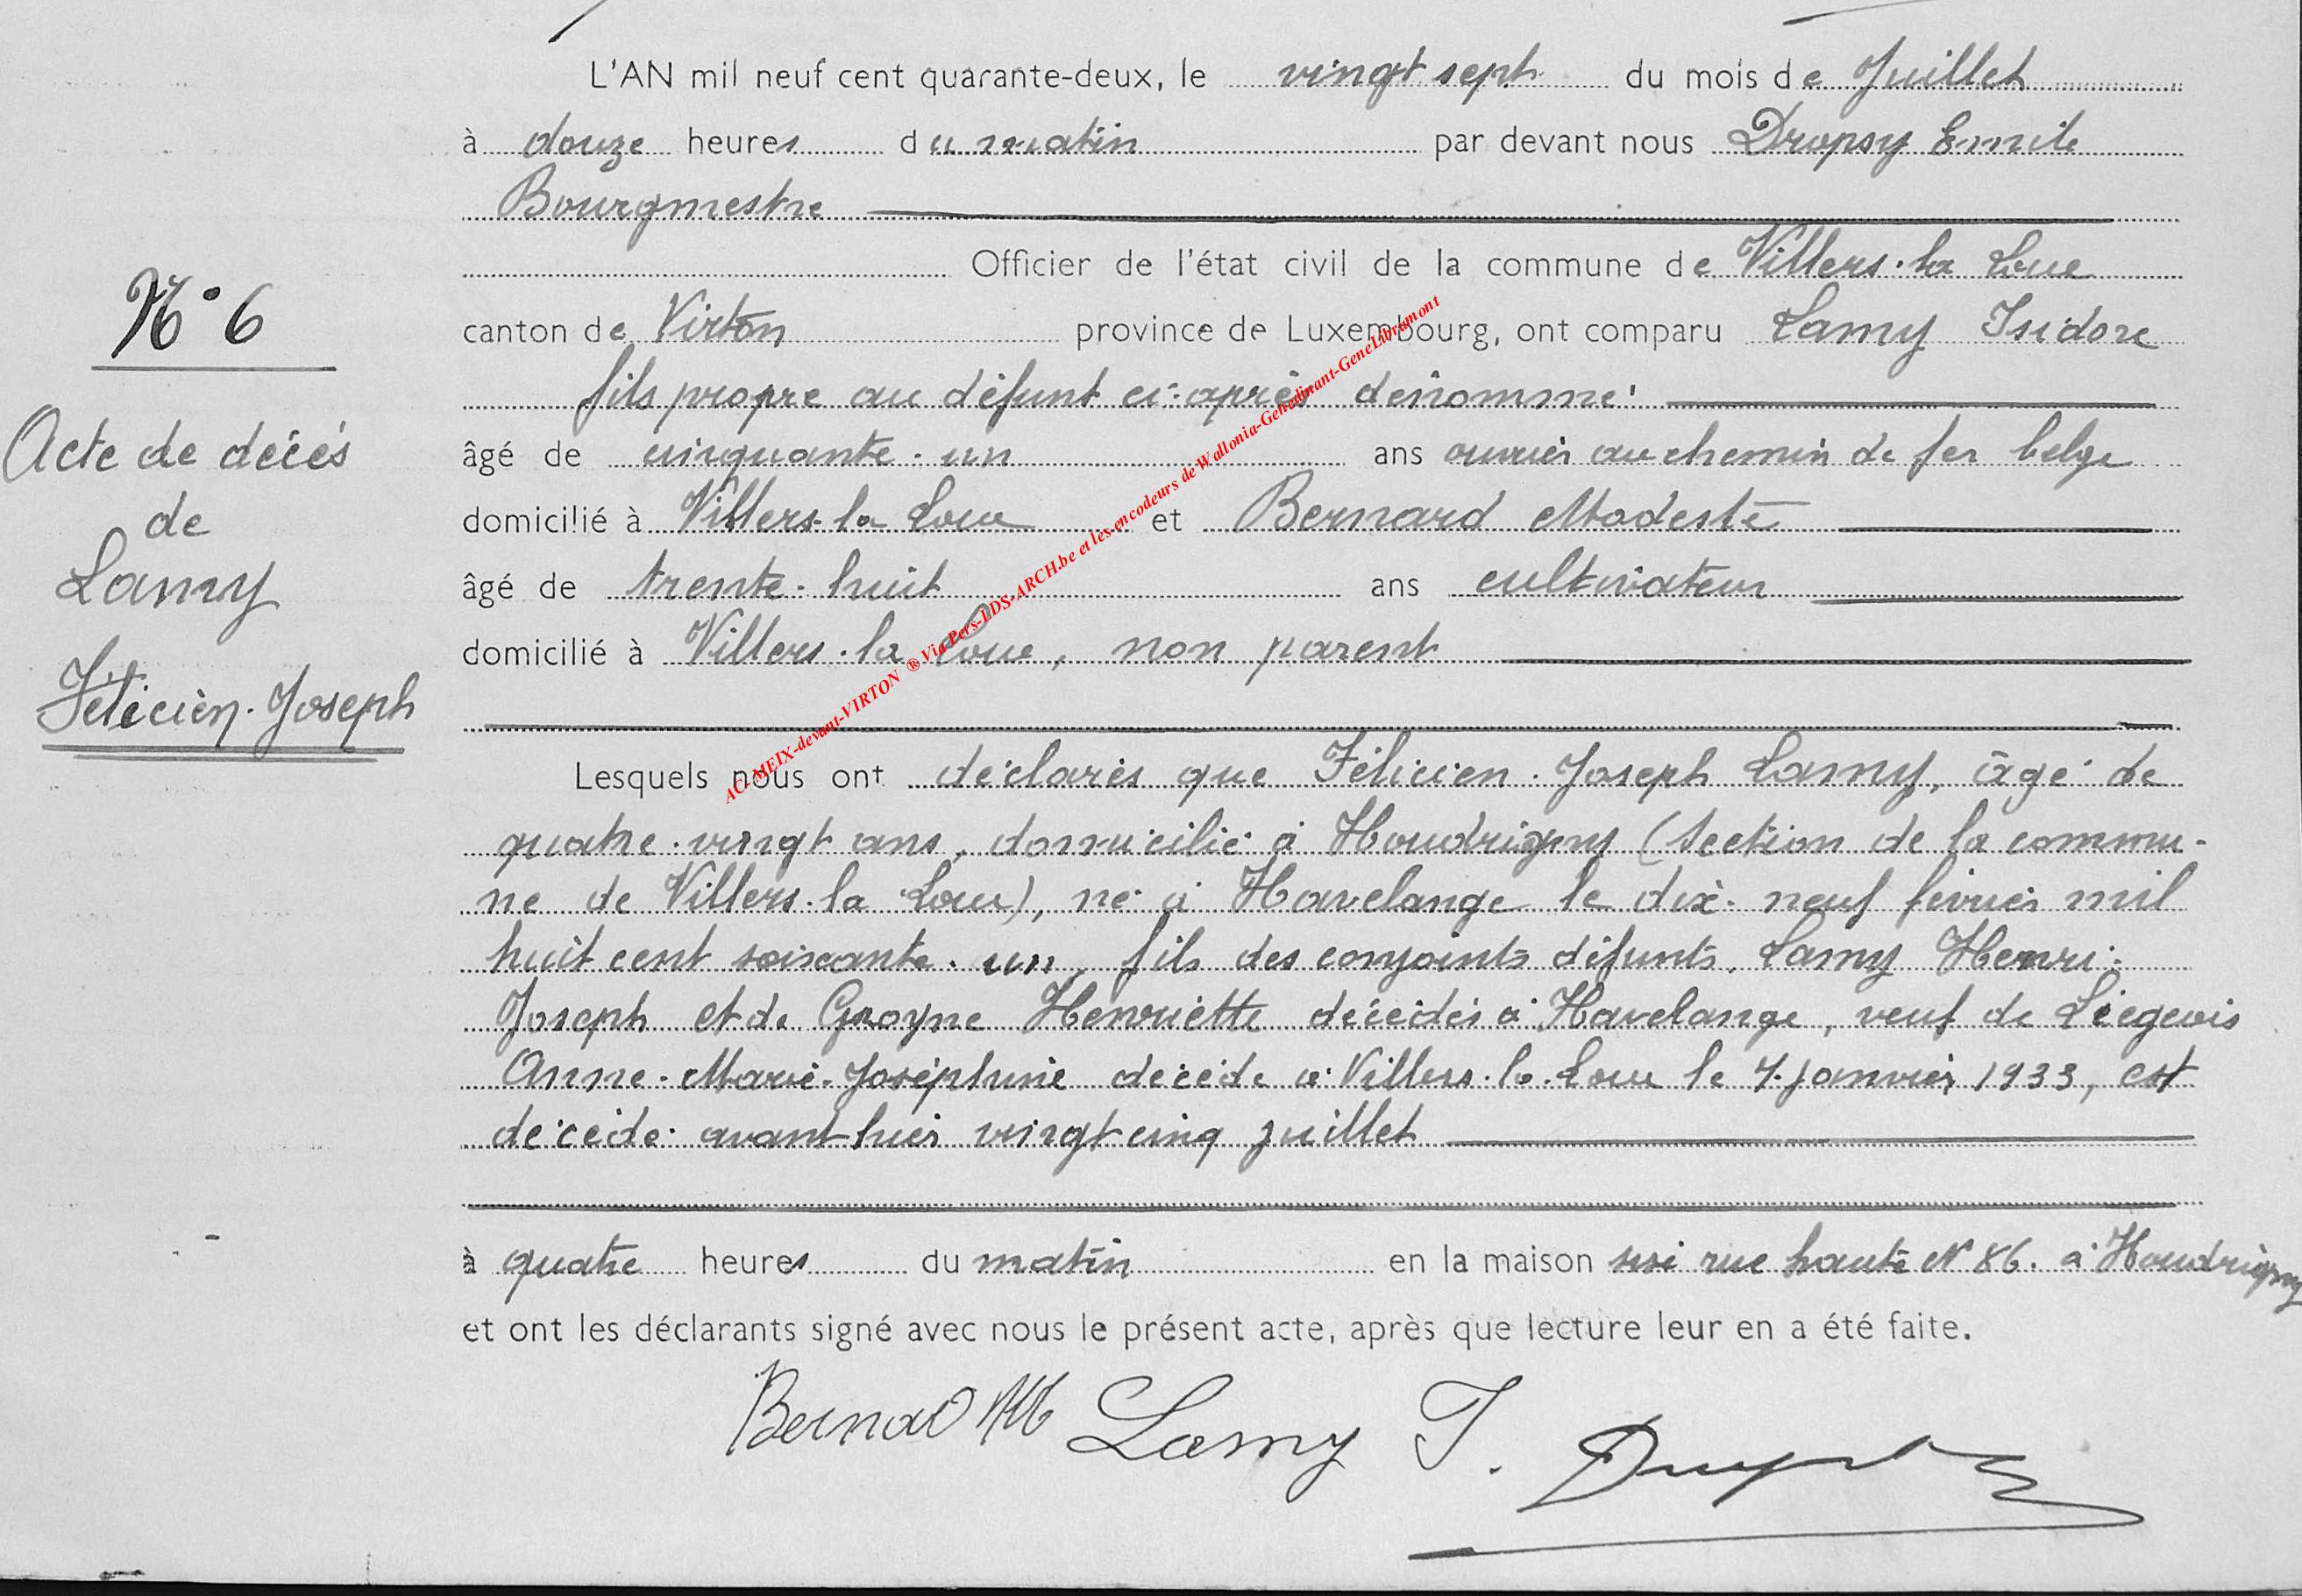 L'AN mil neuf cent quarante-deux, le vingt sept du mois de Juillet
à douze heures du matin par devant nous Dropsy Emile
Bourgmestre
Officier de l'état civil de la commune de Villers-la Loue
N° 6
canton de Virton province de Luxembourg, ont comparu Lamy Isidore
fils propre au défunt ci-après dénommé
Acte de décès
âgé de cinquante-un ans ouvrier au chemin de fer belge
de
domicilié à Villers-la Loue et Bernard Modeste
Lamy
âgé de trente-huit ans cultivateur
domicilié à Villers-la Loue, non parent
Félicien-Joseph
Lesquels nous ont déclarés que Félicien-Joseph Lamy, âgé de
quatre-vingt ans, domicilié à Houdrigny (section de la commu-
ne de Villers-la Loue), né à Havelange le dix-neuf février mil
huit cent soixante-un, fils des conjoints défunts, Lamy Henri-
Joseph et de Groyne Henriette décédés à Havelange, veuf de Liégeois
Anne-Marie-Joséphine décédé à Villers-la-Loue le 7 janvier 1933, est
décédé avant hier vingt cinq juillet
à quatre heures du matin en la maison sise rue haute N° 86. à Houdrigny
et ont les déclarants signé avec nous le présent acte, après que lecture leur en a été faite.
Bernard M Lamy I. Dropsy
AC-MEIX-devant-VIRTON ® Via Pers-LDS-ARCH.be et les encodeurs de Wallonia-Genedinant-GeneLibramont